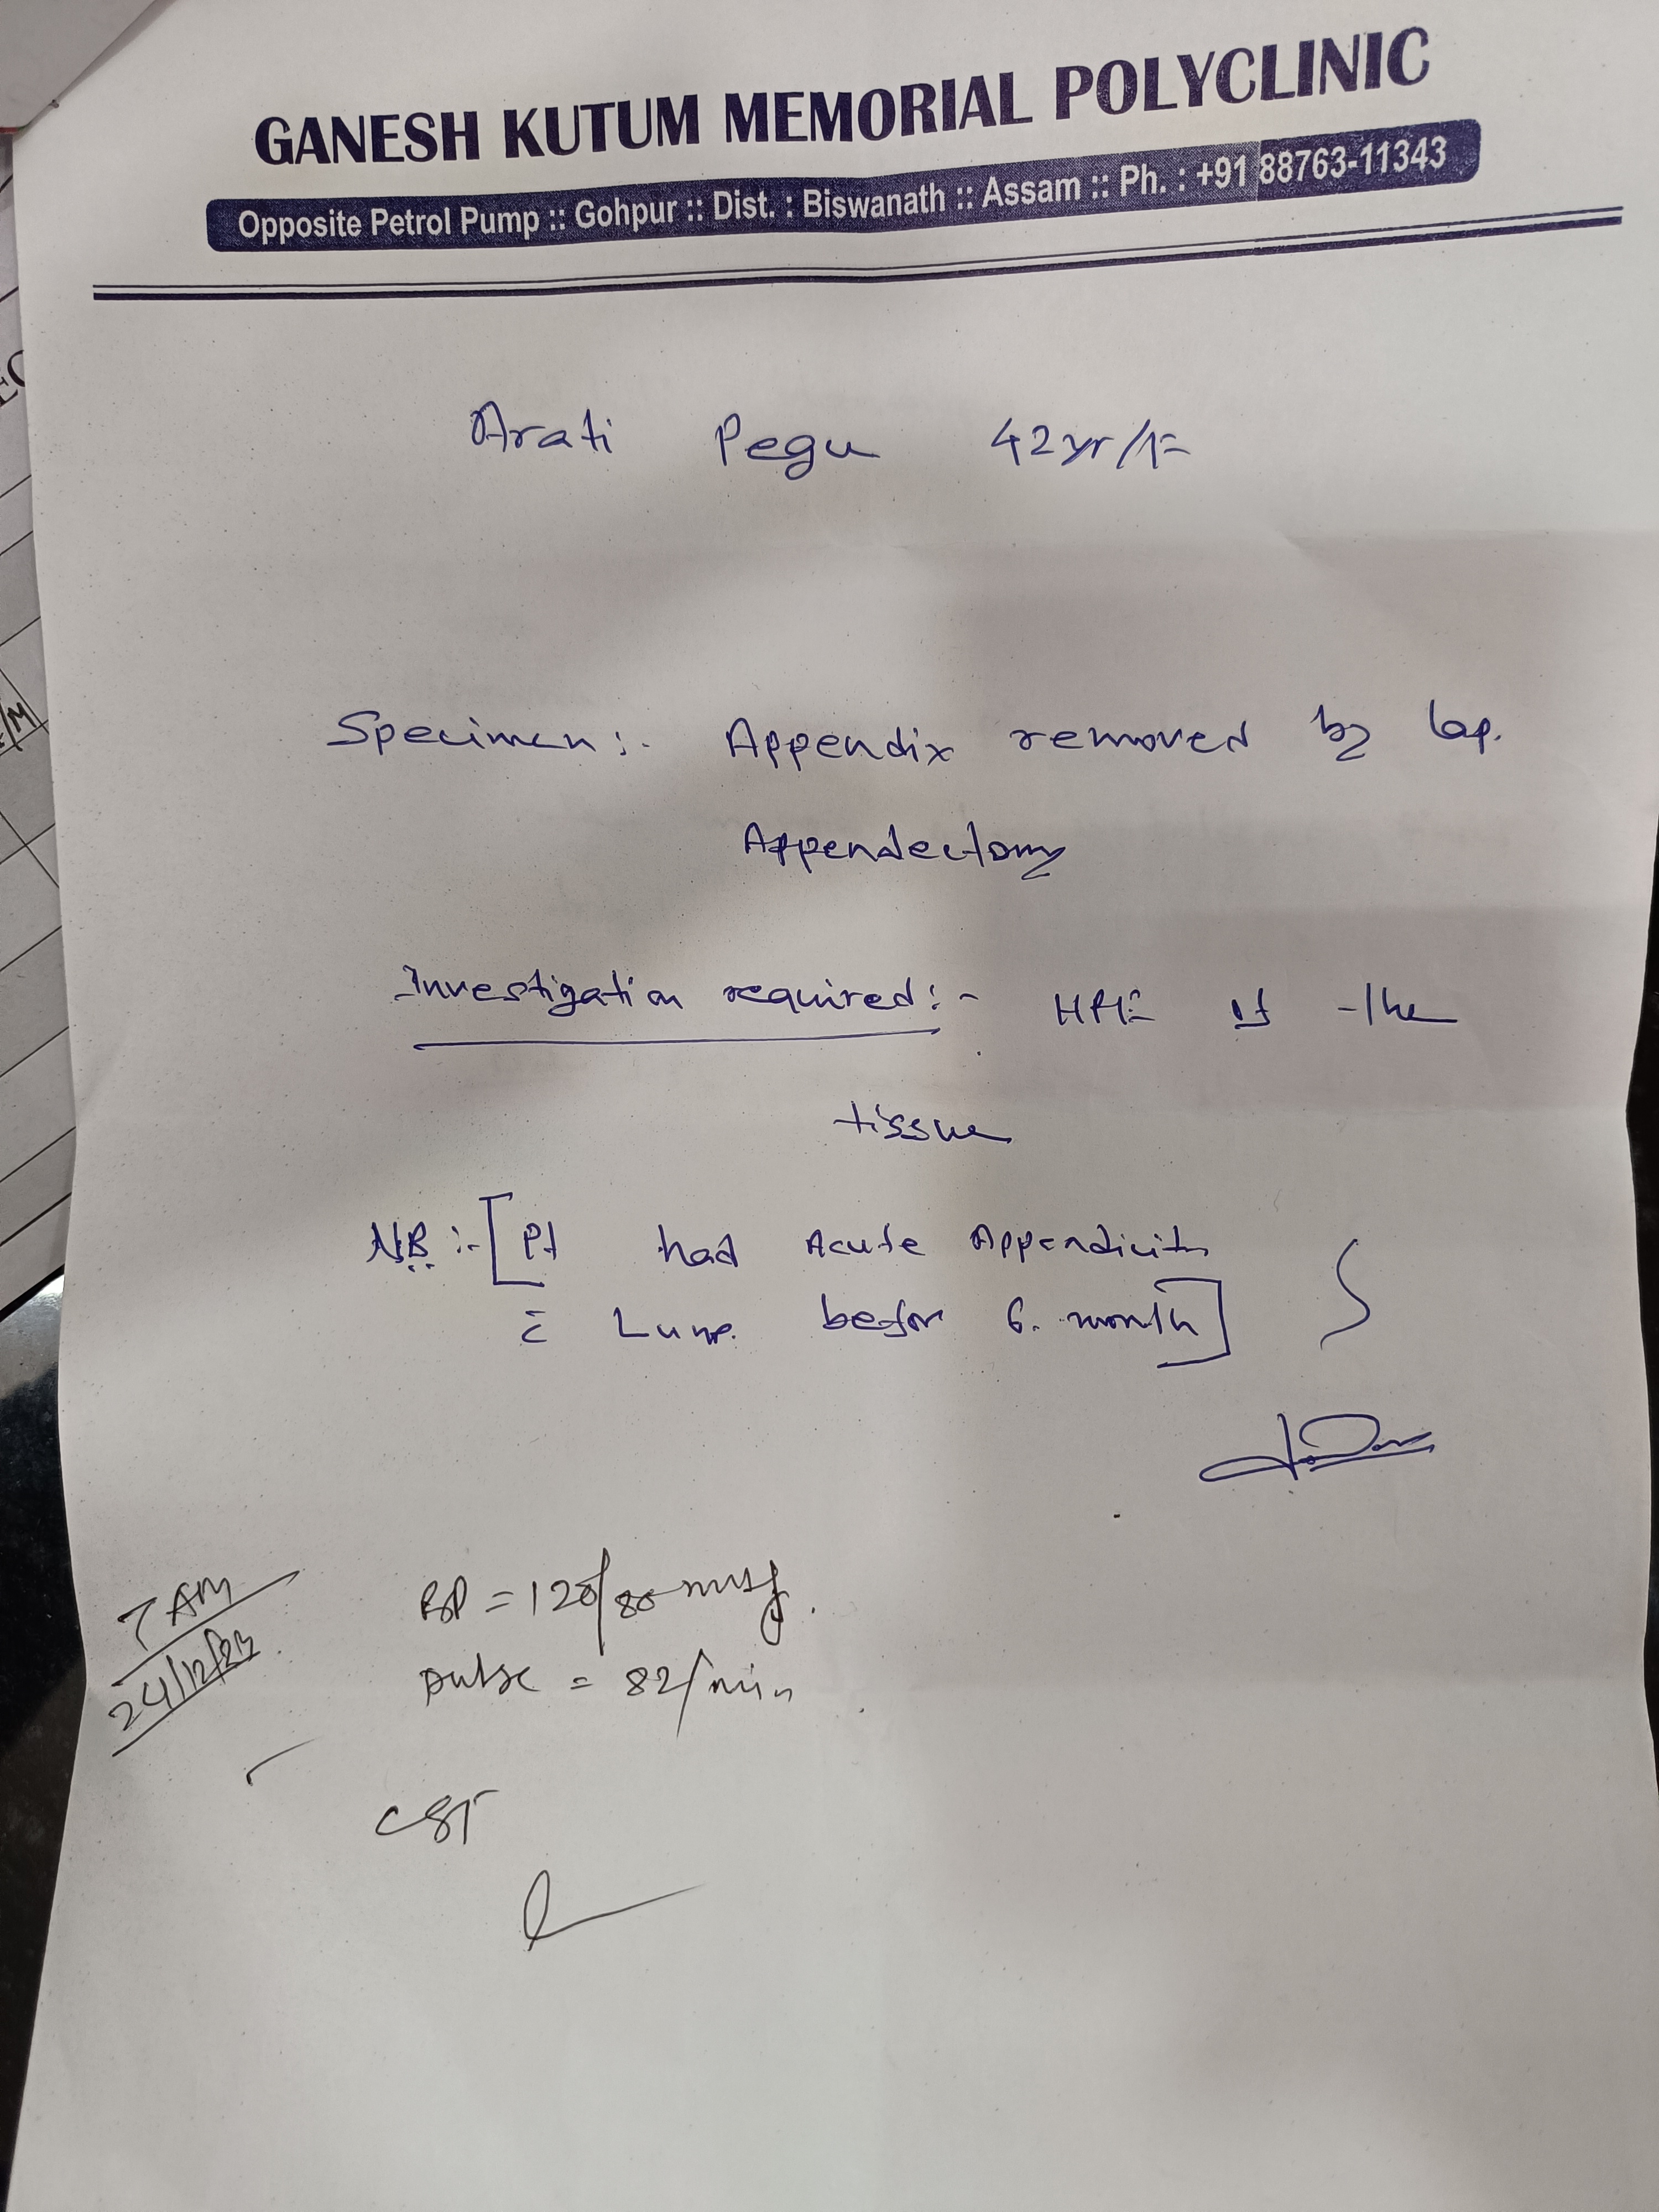 GANESH KUTUM MEMORIAL POLYCLINIC
Opposite Petrol Pump :: Gohpur :: Dist. : Biswanath :: Assam :: Ph. : +91 88763-11343
Arati Pegu 42yr/F
Specimen :- Appendix removed by lap.
Appendectomy
Investigation required :- HPE of the
tissue
NB :- [Pt had Acute Appendicitis
c̄ Lump. befor 6. month]
7 AM
24/12/23
BP = 120/80 mmHg.
pulse = 82/min
CST